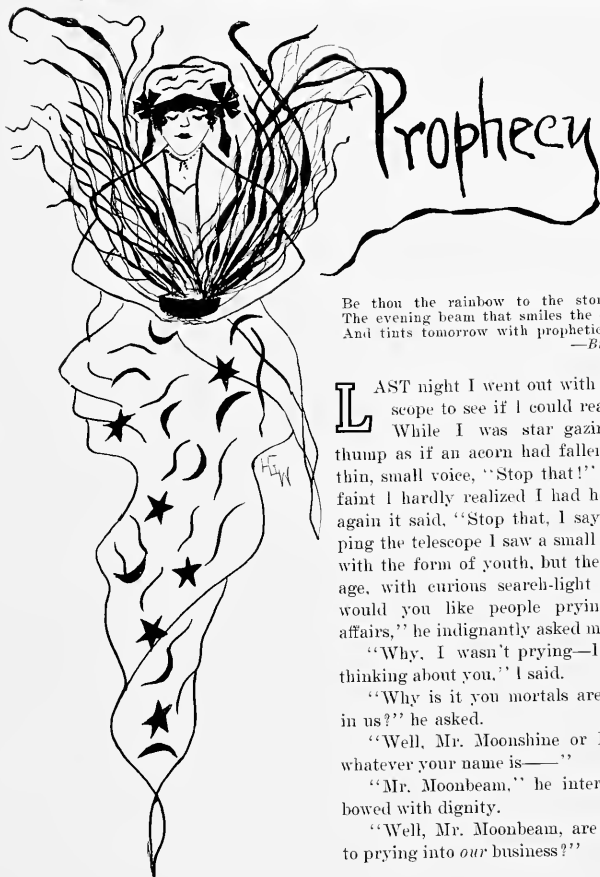 Prophecy
Be thou the rainbow to the
The evening beam that smiles the
And tints tomorrow with
LAST night I went out with
scope to see if I could
While I was star
thump as if an acorn had
thin, small voice, “Stop that!”
faint I hardly realized I had
again it said, “Stop that, I say
ping the telescope I saw a small
with the form of youth, but the
age, with curious search-light
would you like people
affairs,” he indignantly asked
“Why, I wasn't prying—I
thinking about you,” I said.
“Why is it you mortals are
in us?” he asked.
“Well, Mr. Moonshine or
whatever your name is——”
“Mr. Moonbeam,” he
bowed with dignity.
“Well, Mr. Moonbeam, are
to prying into our business?”
HGW